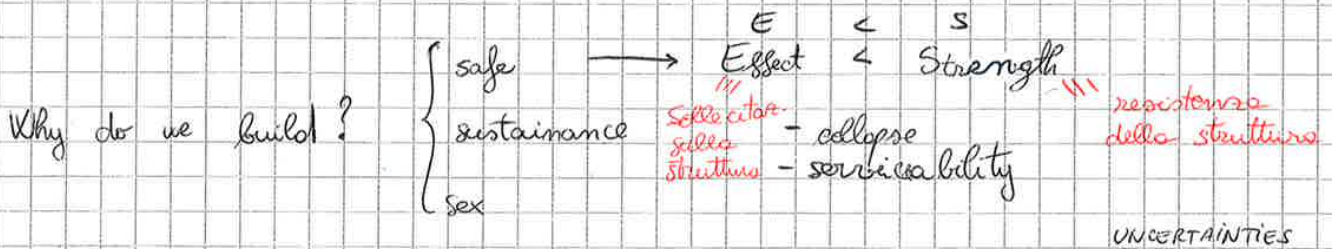 E < S
safe → Effect < Strength
Why do we build?
sustainance
sex
Sollecitaz.
sulla
struttura
- collapse
- serviceability
resistenza
della struttura
UNCERTAINTIES